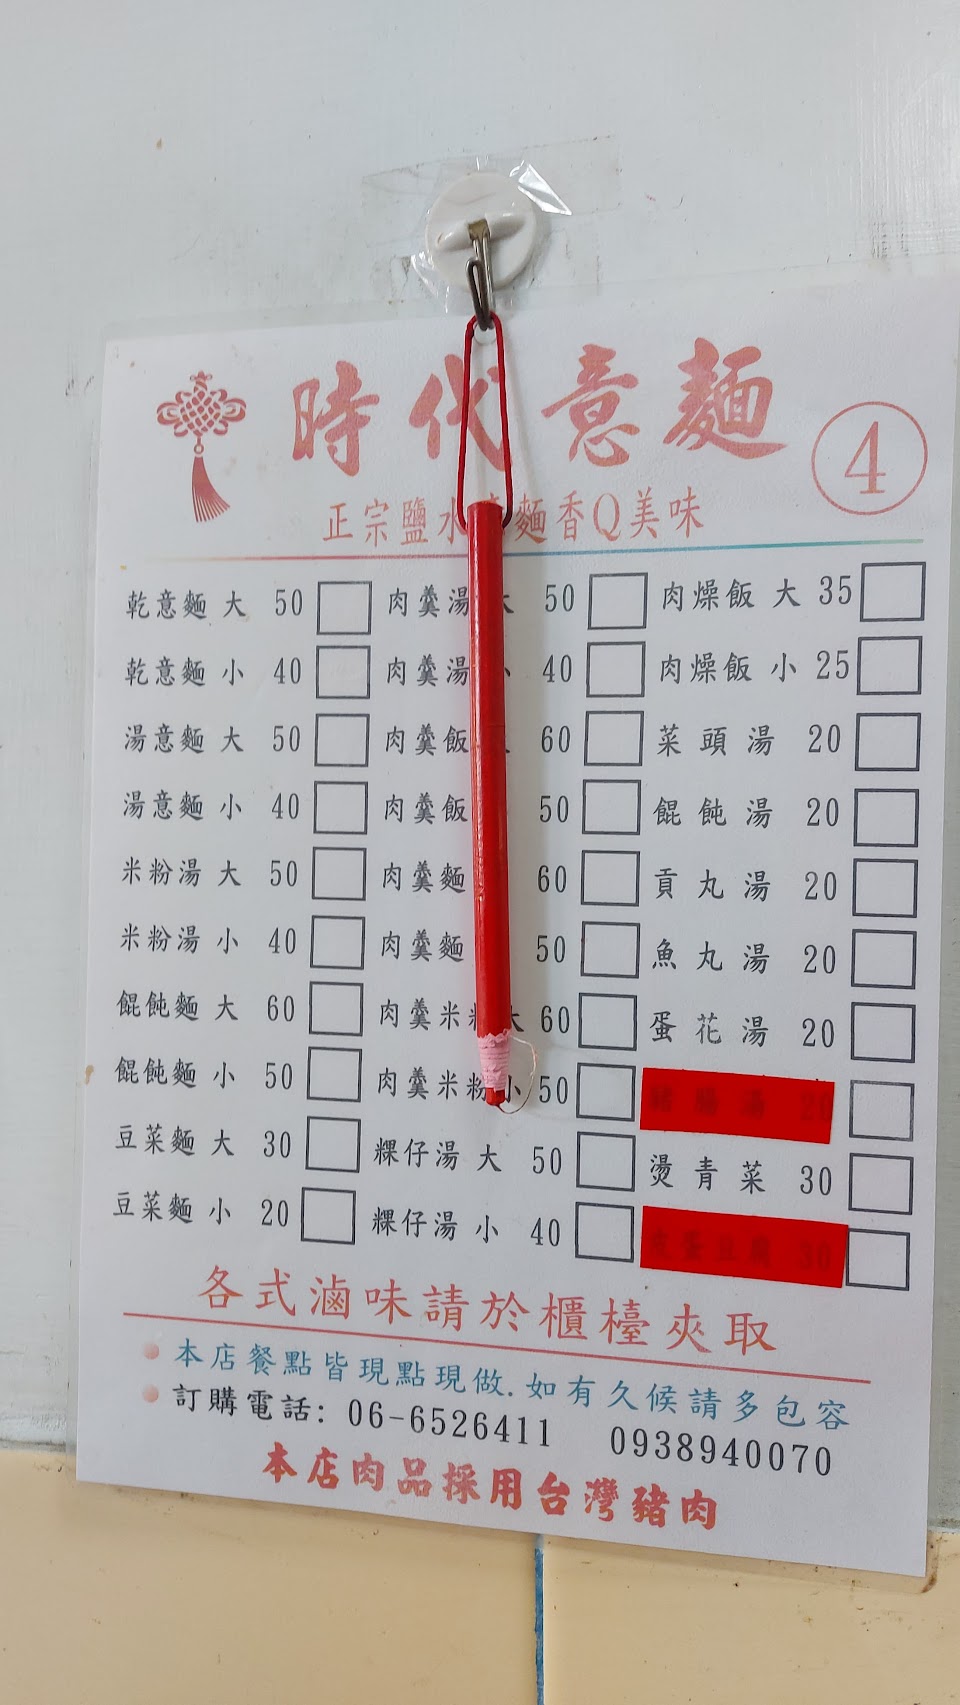 時代意麵
4
正宗鹽水意麵香Q美味
乾意麵 大 50
乾意麵 小 40
湯意麵 大 50
湯意麵 小 40
米粉湯 大 50
米粉湯 小 40
餛飩麵 大 60
餛飩麵 小 50
豆菜麵 大 30
豆菜麵 小 20
肉羹湯 大 50
肉羹湯 小 40
肉羹飯 60
肉羹飯 50
肉羹麵 60
肉羹麵 50
肉羹米粉大 60
肉羹米粉小 50
粿仔湯 大 50
粿仔湯 小 40
肉燥飯 大 35
肉燥飯 小 25
菜頭湯 20
餛飩湯 20
貢丸湯 20
魚丸湯 20
蛋花湯 20
燙青菜 30
各式滷味請於櫃檯夾取
本店餐點皆現點現做.如有久候請多包容
訂購電話: 06-6526411 0938940070
本店肉品採用台灣豬肉